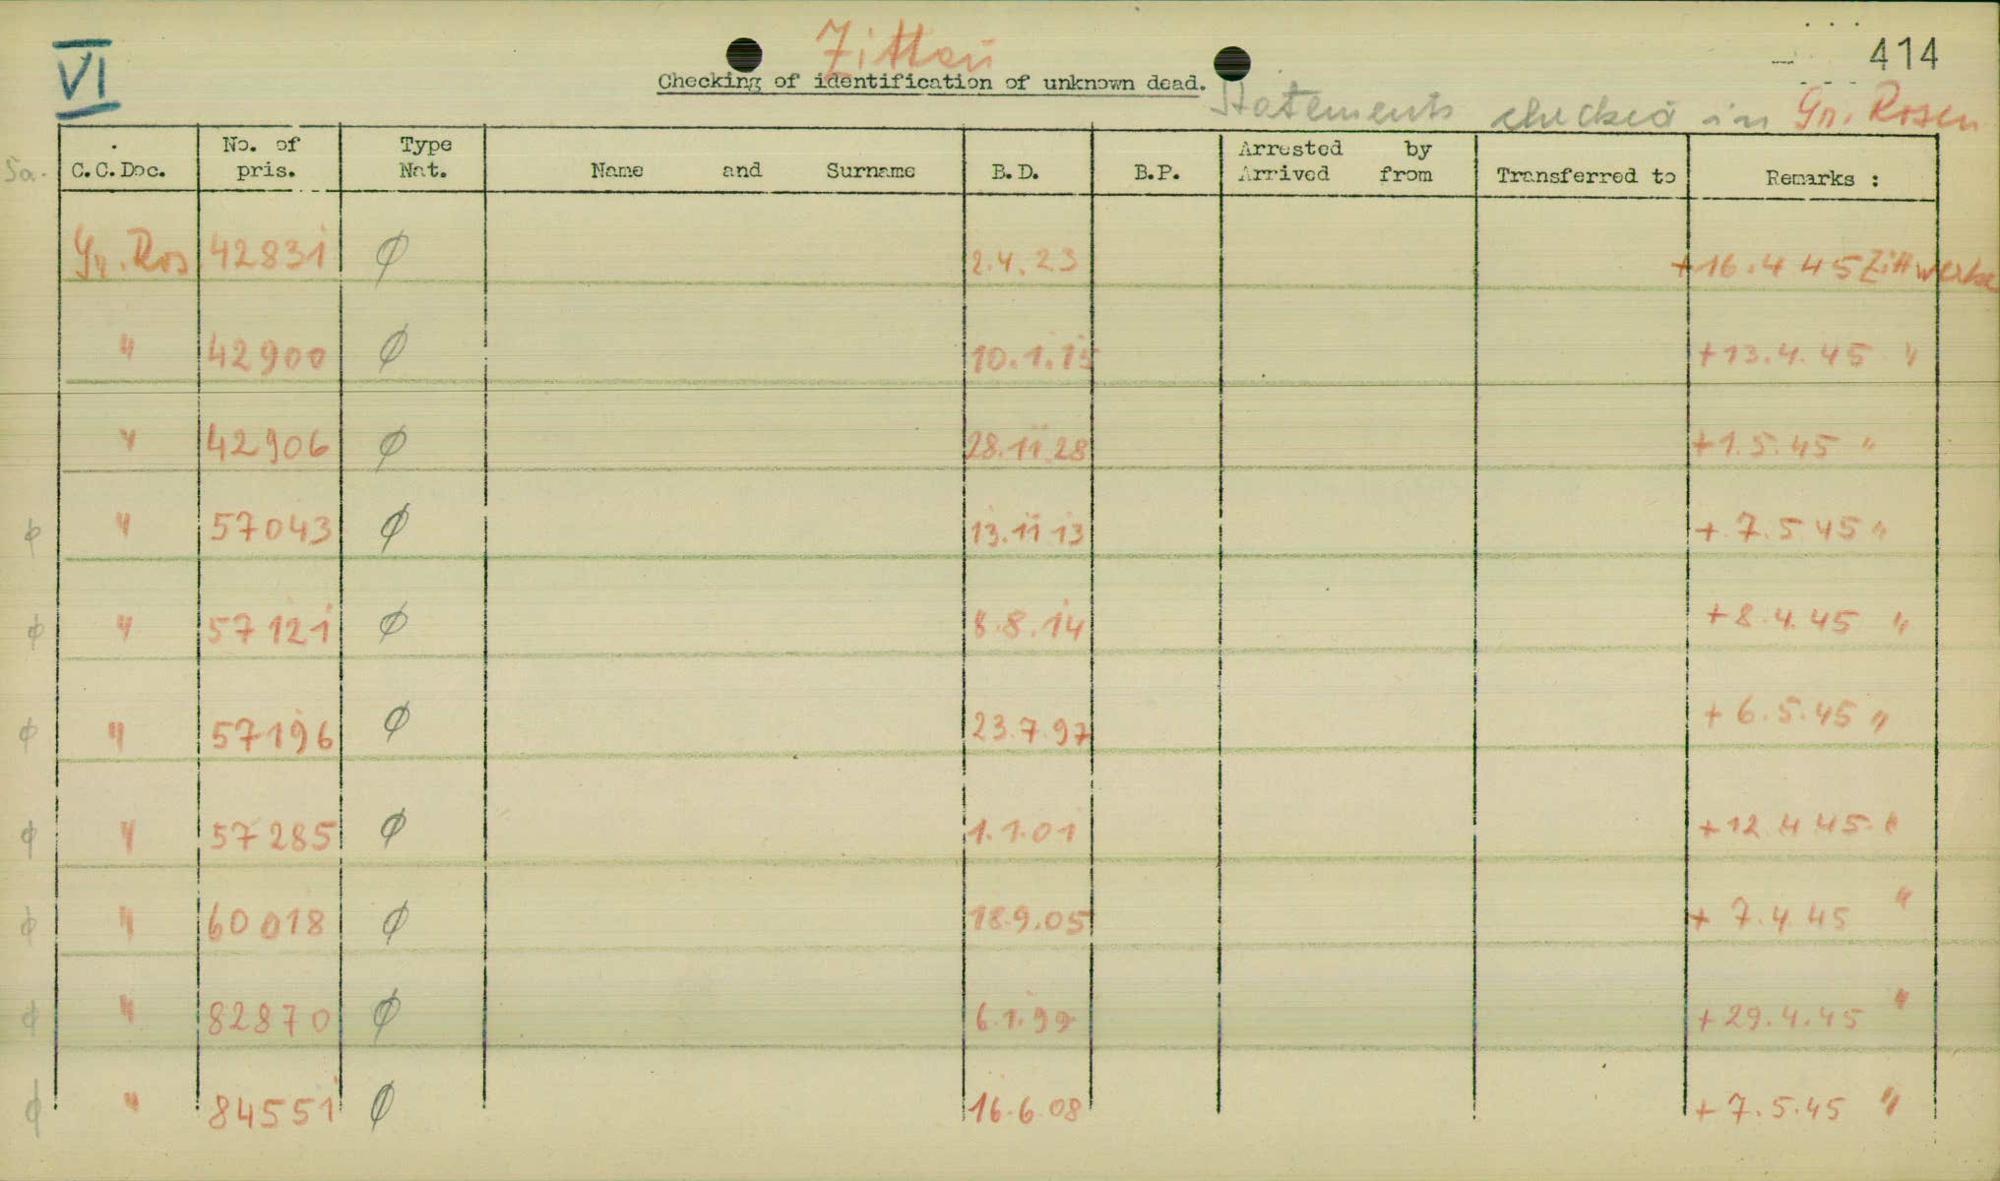 VI
Zittau
414
Checking of identification of unknown dead.
Statements checked in Gr. Rosen
Sa. C.C.Doc. No. of pris. Type Nat. Name and Surname B.D. B.P. Arrested by Arrived from Transferred to Remarks :
Gr. Ros 42831 ϕ 2.4.23 +16.4 45 Zittwerke
" 42900 ϕ 10.1.15 +13.4.45 "
" 42906 ϕ 28.11.28 +1.5.45 "
ϕ " 57043 ϕ 13.11 13 + 7.5 45 "
ϕ " 57121 ϕ 8.8.14 +8.4.45 "
ϕ " 57196 ϕ 23.7.97 + 6.5.45 "
ϕ " 57285 ϕ 1.1.01 +12 4 45. "
ϕ " 60018 ϕ 18.9.05 + 7.4 45 "
ϕ " 82870 ϕ 6.1.99 +29.4.45 "
ϕ " 84551 ϕ 16.6.08 + 7.5.45 "